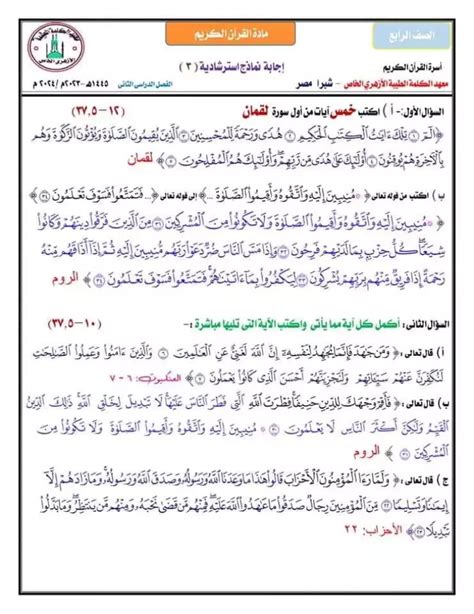 الصف الرابع
مادة القرآن الكريم
أسرة القرآن الكريم
إجابة نماذج استرشادية ( ٣ )
معهد الكلمة الطيبة الأزهري الخاص – شبرا مصر
الفصل الدراسى الثانى
١٤٤٥هـ -٢٠٢٣م /٢٠٢٤ م
السؤال الأول:- أ ) اكتب خمس آيات من أول سورة لقمان (١٢–٣٧,٥)
﴿الٓمٓ ١ تِلْكَ ءَايَٰتُ ٱلْكِتَٰبِ ٱلْحَكِيمِ ٢ هُدًى وَرَحْمَةً لِّلْمُحْسِنِينَ ٣ ٱلَّذِينَ يُقِيمُونَ ٱلصَّلَوٰةَ وَيُؤْتُونَ ٱلزَّكَوٰةَ وَهُم
بِٱلْءَاخِرَةِ هُمْ يُوقِنُونَ ٤ أُو۟لَٰٓئِكَ عَلَىٰ هُدًى مِّن رَّبِّهِمْ وَأُو۟لَٰٓئِكَ هُمُ ٱلْمُفْلِحُونَ ٥ ﴾ لقمان
ب ) اكتب من قوله تعالى ﴿ مُنِيبِينَ إِلَيْهِ وَٱتَّقُوهُ وَأَقِيمُوا۟ ٱلصَّلَوٰةَ ...﴾ إلى قوله تعالى ﴿... فَتَمَتَّعُوا۟ فَسَوْفَ تَعْلَمُونَ ٣٤ ﴾
﴿ ۞ مُنِيبِينَ إِلَيْهِ وَٱتَّقُوهُ وَأَقِيمُوا۟ ٱلصَّلَوٰةَ وَلَا تَكُونُوا۟ مِنَ ٱلْمُشْرِكِينَ ٣١ مِنَ ٱلَّذِينَ فَرَّقُوا۟ دِينَهُمْ وَكَانُوا۟
شِيَعًا كُلُّ حِزْبٍۭ بِمَا لَدَيْهِمْ فَرِحُونَ ٣٢ وَإِذَا مَسَّ ٱلنَّاسَ ضُرٌّ دَعَوْا۟ رَبَّهُم مُّنِيبِينَ إِلَيْهِ ثُمَّ إِذَآ أَذَاقَهُم مِّنْهُ
رَحْمَةً إِذَا فَرِيقٌ مِّنْهُم بِرَبِّهِمْ يُشْرِكُونَ ٣٣ لِيَكْفُرُوا۟ بِمَآ ءَاتَيْنَٰهُمْ فَتَمَتَّعُوا۟ فَسَوْفَ تَعْلَمُونَ ٣٤ ﴾ الروم
السؤال الثانى: أكمل كل آية مما يأتى واكتب الآية التى تليها مباشرة :- (١٠–٣٧,٥)
أ ) قال تعالى: ﴿ وَمَن جَٰهَدَ فَإِنَّمَا يُجَٰهِدُ لِنَفْسِهِۦٓ إِنَّ ٱللَّهَ لَغَنِىٌّ عَنِ ٱلْعَٰلَمِينَ ٦ وَٱلَّذِينَ ءَامَنُوا۟ وَعَمِلُوا۟ ٱلصَّٰلِحَٰتِ
لَنُكَفِّرَنَّ عَنْهُمْ سَيِّـَٔاتِهِمْ وَلَنَجْزِيَنَّهُمْ أَحْسَنَ ٱلَّذِى كَانُوا۟ يَعْمَلُونَ ٧ ﴾ العنكبوت: ٦ - ٧
ب ) قال تعالى: ﴿ فَأَقِمْ وَجْهَكَ لِلدِّينِ حَنِيفًا فِطْرَتَ ٱللَّهِ ٱلَّتِى فَطَرَ ٱلنَّاسَ عَلَيْهَا لَا تَبْدِيلَ لِخَلْقِ ٱللَّهِ ذَٰلِكَ ٱلدِّينُ
ٱلْقَيِّمُ وَلَٰكِنَّ أَكْثَرَ ٱلنَّاسِ لَا يَعْلَمُونَ ٣٠ ۞ مُنِيبِينَ إِلَيْهِ وَٱتَّقُوهُ وَأَقِيمُوا۟ ٱلصَّلَوٰةَ وَلَا تَكُونُوا۟ مِنَ
ٱلْمُشْرِكِينَ ٣١ ﴾ الروم
ج ) قال تعالى: ﴿ وَلَمَّا رَءَا ٱلْمُؤْمِنُونَ ٱلْأَحْزَابَ قَالُوا۟ هَٰذَا مَا وَعَدَنَا ٱللَّهُ وَرَسُولُهُۥ وَصَدَقَ ٱللَّهُ وَرَسُولُهُۥ وَمَا زَادَهُمْ إِلَّآ
إِيمَٰنًا وَتَسْلِيمًا ٢٢ مِّنَ ٱلْمُؤْمِنِينَ رِجَالٌ صَدَقُوا۟ مَا عَٰهَدُوا۟ ٱللَّهَ عَلَيْهِ فَمِنْهُم مَّن قَضَىٰ نَحْبَهُۥ وَمِنْهُم مَّن يَنتَظِرُ وَمَا بَدَّلُوا۟
تَبْدِيلًا ٢٣ ﴾ الأحزاب: ٢٢